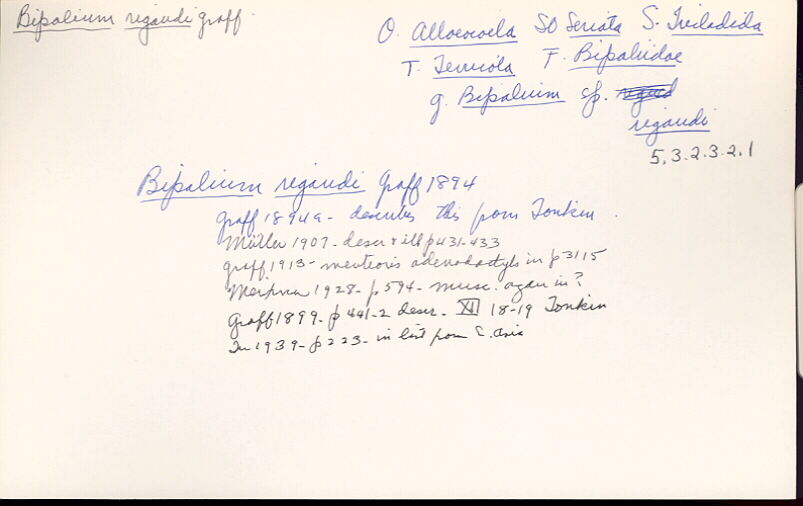 Bipalium regaudi Graff.
O. Alloeocoela SO Seriata S. Tricladida
T. Terricola F. Bipaliidae
g. Bipalium sp.
regaudi
5.3.2.3.2.1
Bipalium regaudi Graff 1894
Graff 1894a - describes this from Tonkin.
Müller 1907 - descr & ill p 431-433
Graff 1913 - mentions adenodactyls in p 3115
1928 - p 594 - musc. organ in ?
Graff 1899 - p 441-2 descr. - XII 18-19 Tonkin
1939 - p 223 - in list from E. Asia